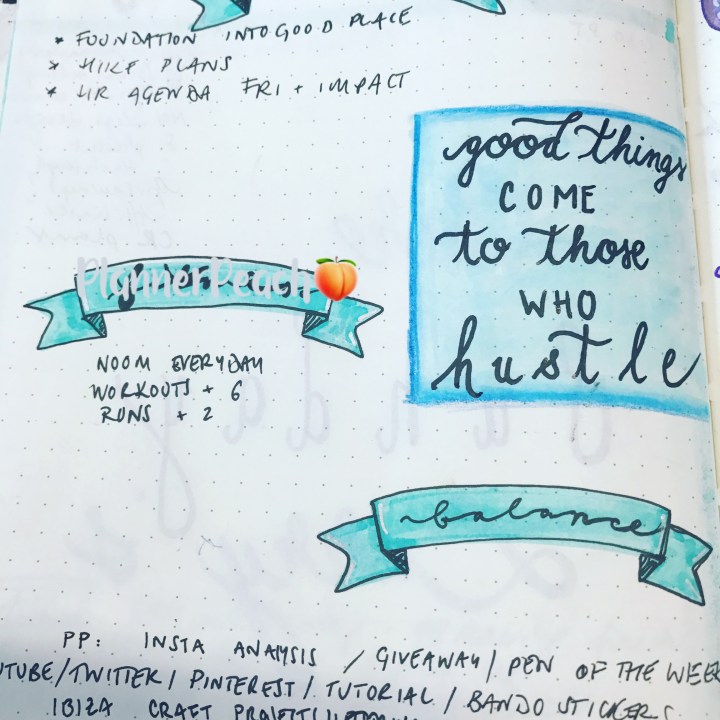 * FOUNDATION INTO GOOD PLACE
* HIKE PLANS
* HR AGENDA FRI + IMPACT
good things
COME
to those
WHO
hustle
PlannerPeach🍑
NOOM EVERYDAY
WORKOUTS + 6
RUNS + 2
balance
PP: INSTA ANALYSIS / GIVEAWAY / PEN OF THE WEEK
UTUBE/TWITTER / PINTEREST / TUTORIAL / BANDO STICKERS
IBIZA CRAFT